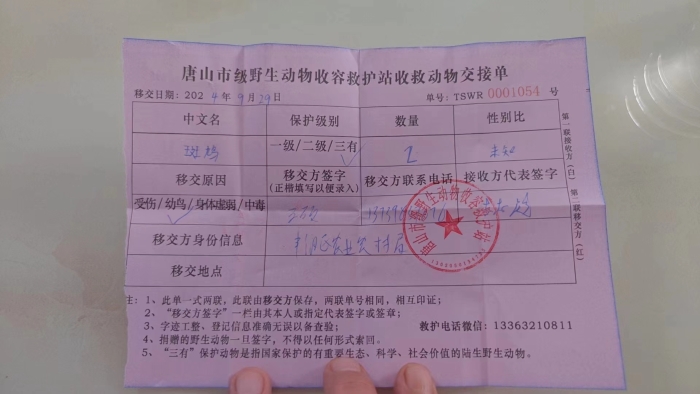 唐山市级野生动物收容救护站收救动物交接单
移交日期:2024年9月29日 单号: TSWR 0001054 号
中文名 保护级别 数量 性别比
斑鸠 一级/二级/三有 2 未知
移交原因 移交方签字 移交方联系电话 接收方代表签字
(正楷填写以便录入)
受伤/幼鸟/身体虚弱/中毒
移交方身份信息 丰润区农业农村局
移交地点
第一联接收方(白) 第二联移交方(红)
唐山市级野生动物收容救护站
注: 1、此单一式两联,此联由移交方保存,两联单号相同,相互印证;
2、“移交方签字”一栏由其本人或指定代表签字或签章;
3、字迹工整、登记信息准确无误以备查验; 救护电话微信: 13363210811
4、捐赠的野生动物一旦签字,不得以任何形式索回。
5、“三有”保护动物是指国家保护的有重要生态、科学、社会价值的陆生野生动物。